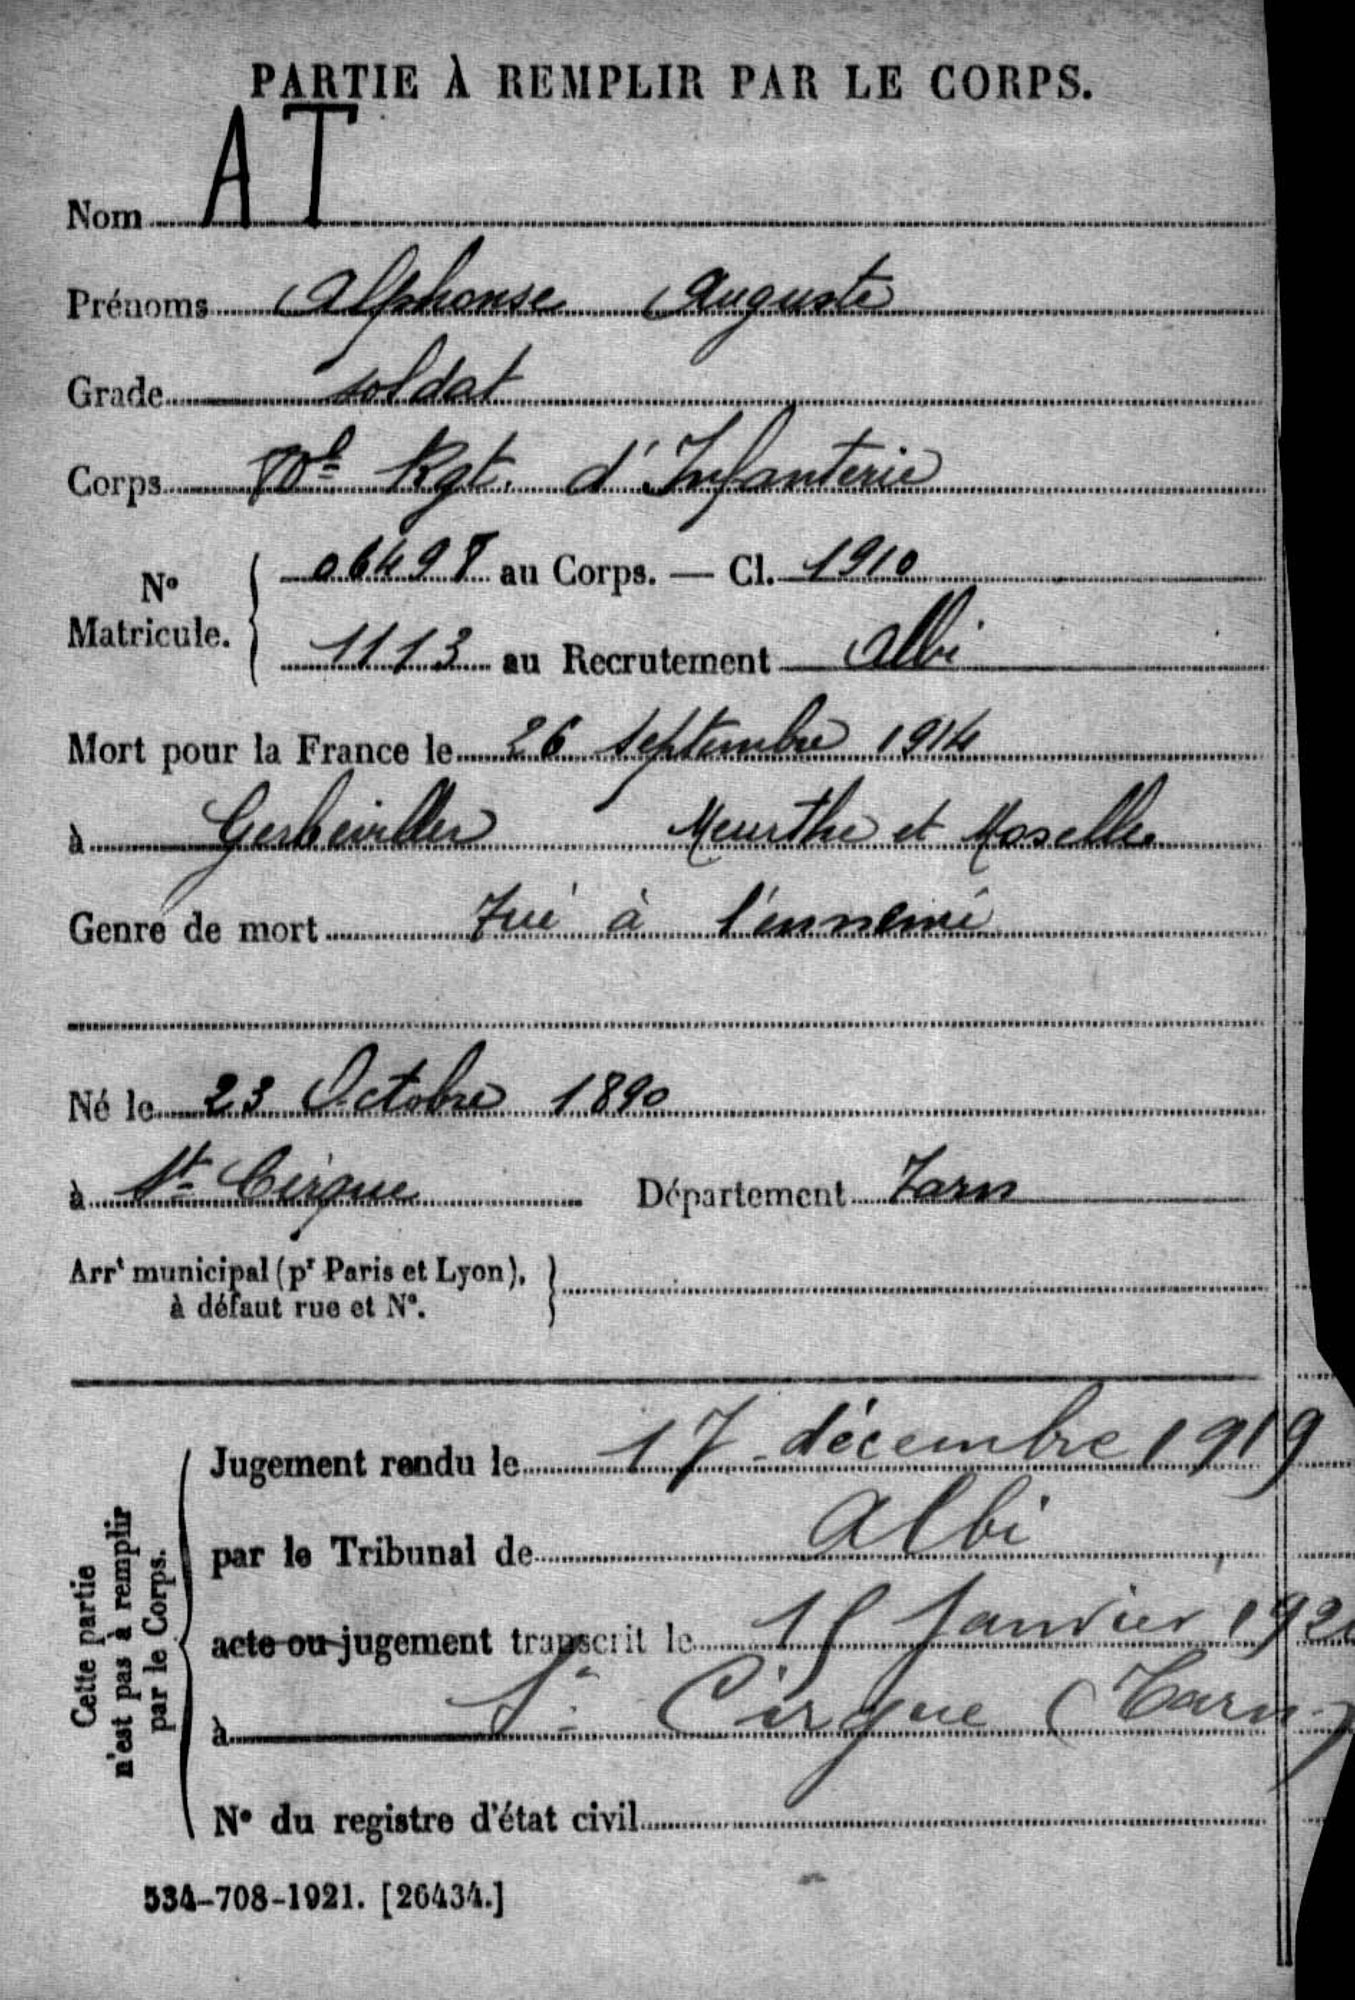 PARTIE À REMPLIR PAR LE CORPS.
Nom AT
Prénoms Alphonse Auguste
Grade soldat
Corps Rgt. d'Infanterie
N° Matricule. { 06497 au Corps. — Cl. 1910
1113 au Recrutement Albi
Mort pour la France le 26 septembre 1914
à Gerbeviller Meurthe et Moselle
Genre de mort Tué à l'ennemi
Né le 23 Octobre 1890
à St Cirque Département Tarn
Arrt municipal (pr Paris et Lyon), à défaut rue et N°. }
Cette partie n'est pas à remplir par le Corps.
Jugement rendu le 17 décembre 1919
par le Tribunal de Albi
acte ou jugement transcrit le 15 Janvier 1920
à St Cirque (Tarn)
N° du registre d'état civil
534-708-1921. [26434.]